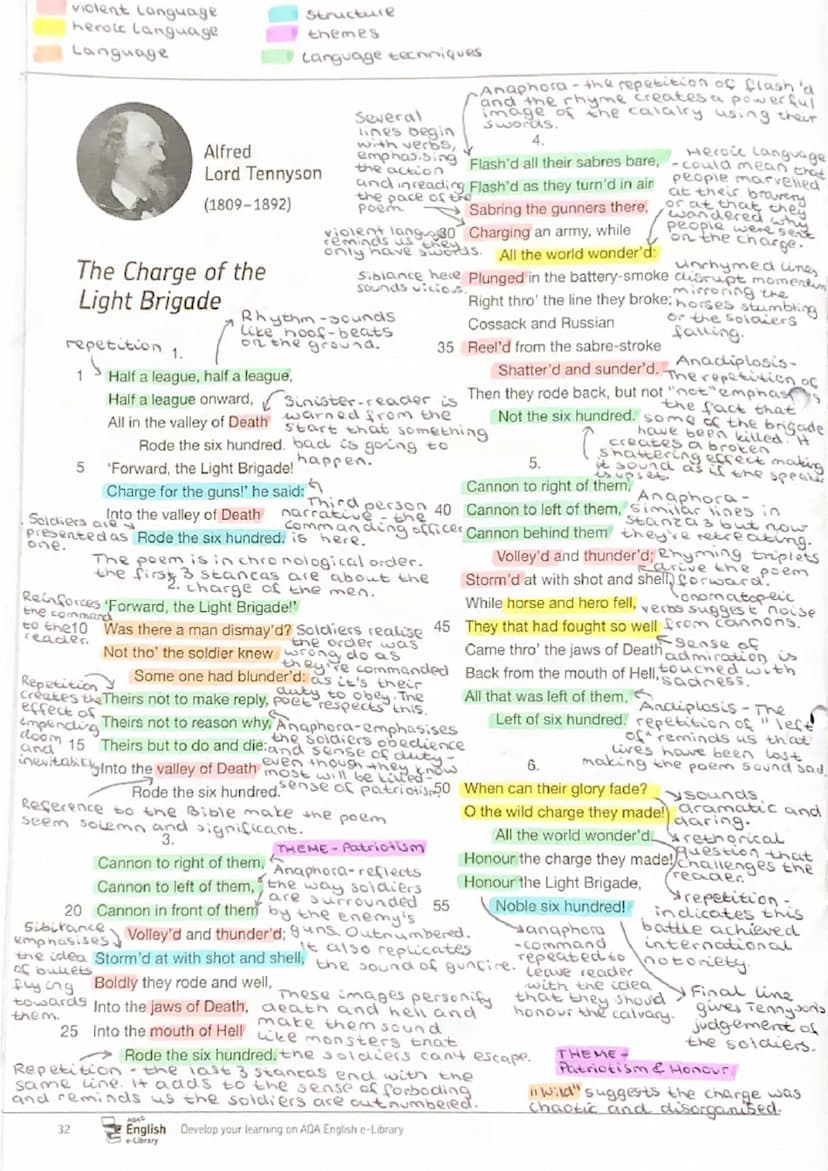 violent language
heroic language
Language
structure
themes
Language techniques
Alfred
Lord Tennyson
(1809–1892)
The Charge of the
Light Brigade
Rhythm - sounds
like hoof-beats
on the ground.
repetition
1.
1 Half a league, half a league,
Half a league onward,
All in the valley of Death
Rode the six hundred.
Sinister - reader is
warned from the
start that something
bad is going to
happen.
5 'Forward, the Light Brigade!
Charge for the guns!' he said:
Into the valley of Death
Rode the six hundred.
Third person
narrative - the
commanding officer
is here.
Soldiers are
presented as
one.
The poem is in chronological order.
the first 3 stancas are about the
charge of the men.
2.
Reinforces
the command
to the
reader.
'Forward, the Light Brigade!'
10 Was there a man dismay'd?
Not tho' the soldier knew
Some one had blunder'd:
Theirs not to make reply,
Theirs not to reason why,
15 Theirs but to do and die:
Into the valley of Death
Rode the six hundred.
Soldiers realise
the order was
wrong do as
they're commanded
as it's their
duty to obey. The
poet respects this.
Repetition
creates the
effect of
impending
doom
and
inevitability
Anaphora - emphasises
the soldiers obedience
and sense of duty -
even though they know
most will be killed -
sense of patriotism.
Reference to the Bible make the poem
seem solemn and significant.
3.
THEME - Patriotism
Cannon to right of them,
Cannon to left of them,
20 Cannon in front of them
Volley'd and thunder'd;
Storm'd at with shot and shell,
Boldly they rode and well,
Into the jaws of Death,
25 Into the mouth of Hell
Rode the six hundred.
Anaphora - reflects
the way soldiers
are surrounded
by the enemy's
guns. Outnumbered.
It also replicates
the sound of gunfire.
Sibilance
emphasises
the idea
of bullets
flying
towards
them.
These images personify
death and hell and
make them sound
like monsters that
the soldiers cant escape.
Repetition - the last 3 stancas end with the
same line. It adds to the sense of forboding
and reminds us the soldiers are outnumbered.
Several
lines begin
with verbs,
emphasising
the action
and inreading
the pace of the
poem
Anaphora - the repetition of flash'd
and the rhyme creates a powerful
image of the calalry using their
swords.
4.
Flash'd all their sabres bare,
Flash'd as they turn'd in air
Sabring the gunners there,
30 Charging an army, while
All the world wonder'd:
Plunged in the battery-smoke
Right thro' the line they broke;
Cossack and Russian
35 Reel'd from the sabre-stroke
Shatter'd and sunder'd.
Then they rode back, but not
Not the six hundred.
violent language
reminds us they
only have swords.
Siblance here
sounds vicious.
Heroic Language
- could mean that
people marvelled
at their bravery
or at that they
wandered why
people were sent
on the charge.
unrhymed lines
disrupt momentum
mirroring the
horses stumbling
or the soldiers
falling.
Anadiplosis -
The repetition of
"not" emphasises
the fact that
some of the brigade
have been killed. It
creates a broken
shattering effect making
it sound as if the speaker
is upset.
5.
Cannon to right of them,
40 Cannon to left of them,
Cannon behind them
Volley'd and thunder'd;
Storm'd at with shot and shell,
While horse and hero fell,
45 They that had fought so well
Came thro' the jaws of Death
Back from the mouth of Hell,
All that was left of them,
Left of six hundred.
Anaphora -
similar lines in
stanza 3 but now
they're retreating.
Rhyming triplets
drive the poem
forward.
onomatopeic
verbs suggest noise
from cannons.
Sense of
admiration is
touched with
sadness.
Andiplosis - The
repetition of "left
of" reminds us that
lives have been lost
making the poem sound sad.
6.
50 When can their glory fade?
O the wild charge they made!
All the world wonder'd.
Honour the charge they made!
Honour the Light Brigade,
55 Noble six hundred!
sounds
dramatic and
daring.
rethorical
question that
challenges the
reader.
repetition -
indicates this
battle achieved
international
notoriety.
anaphora
- command
repeated to
leave reader
with the idea
that they should
honour the calvary.
Final line
gives Tennyson's
judgement of
the soldiers.
THEME -
Patriotism & Honour
"Wild" suggests the charge was
chaotic and disorganised.
32
AQA
English
e-Library
Develop your learning on AQA English e-Library